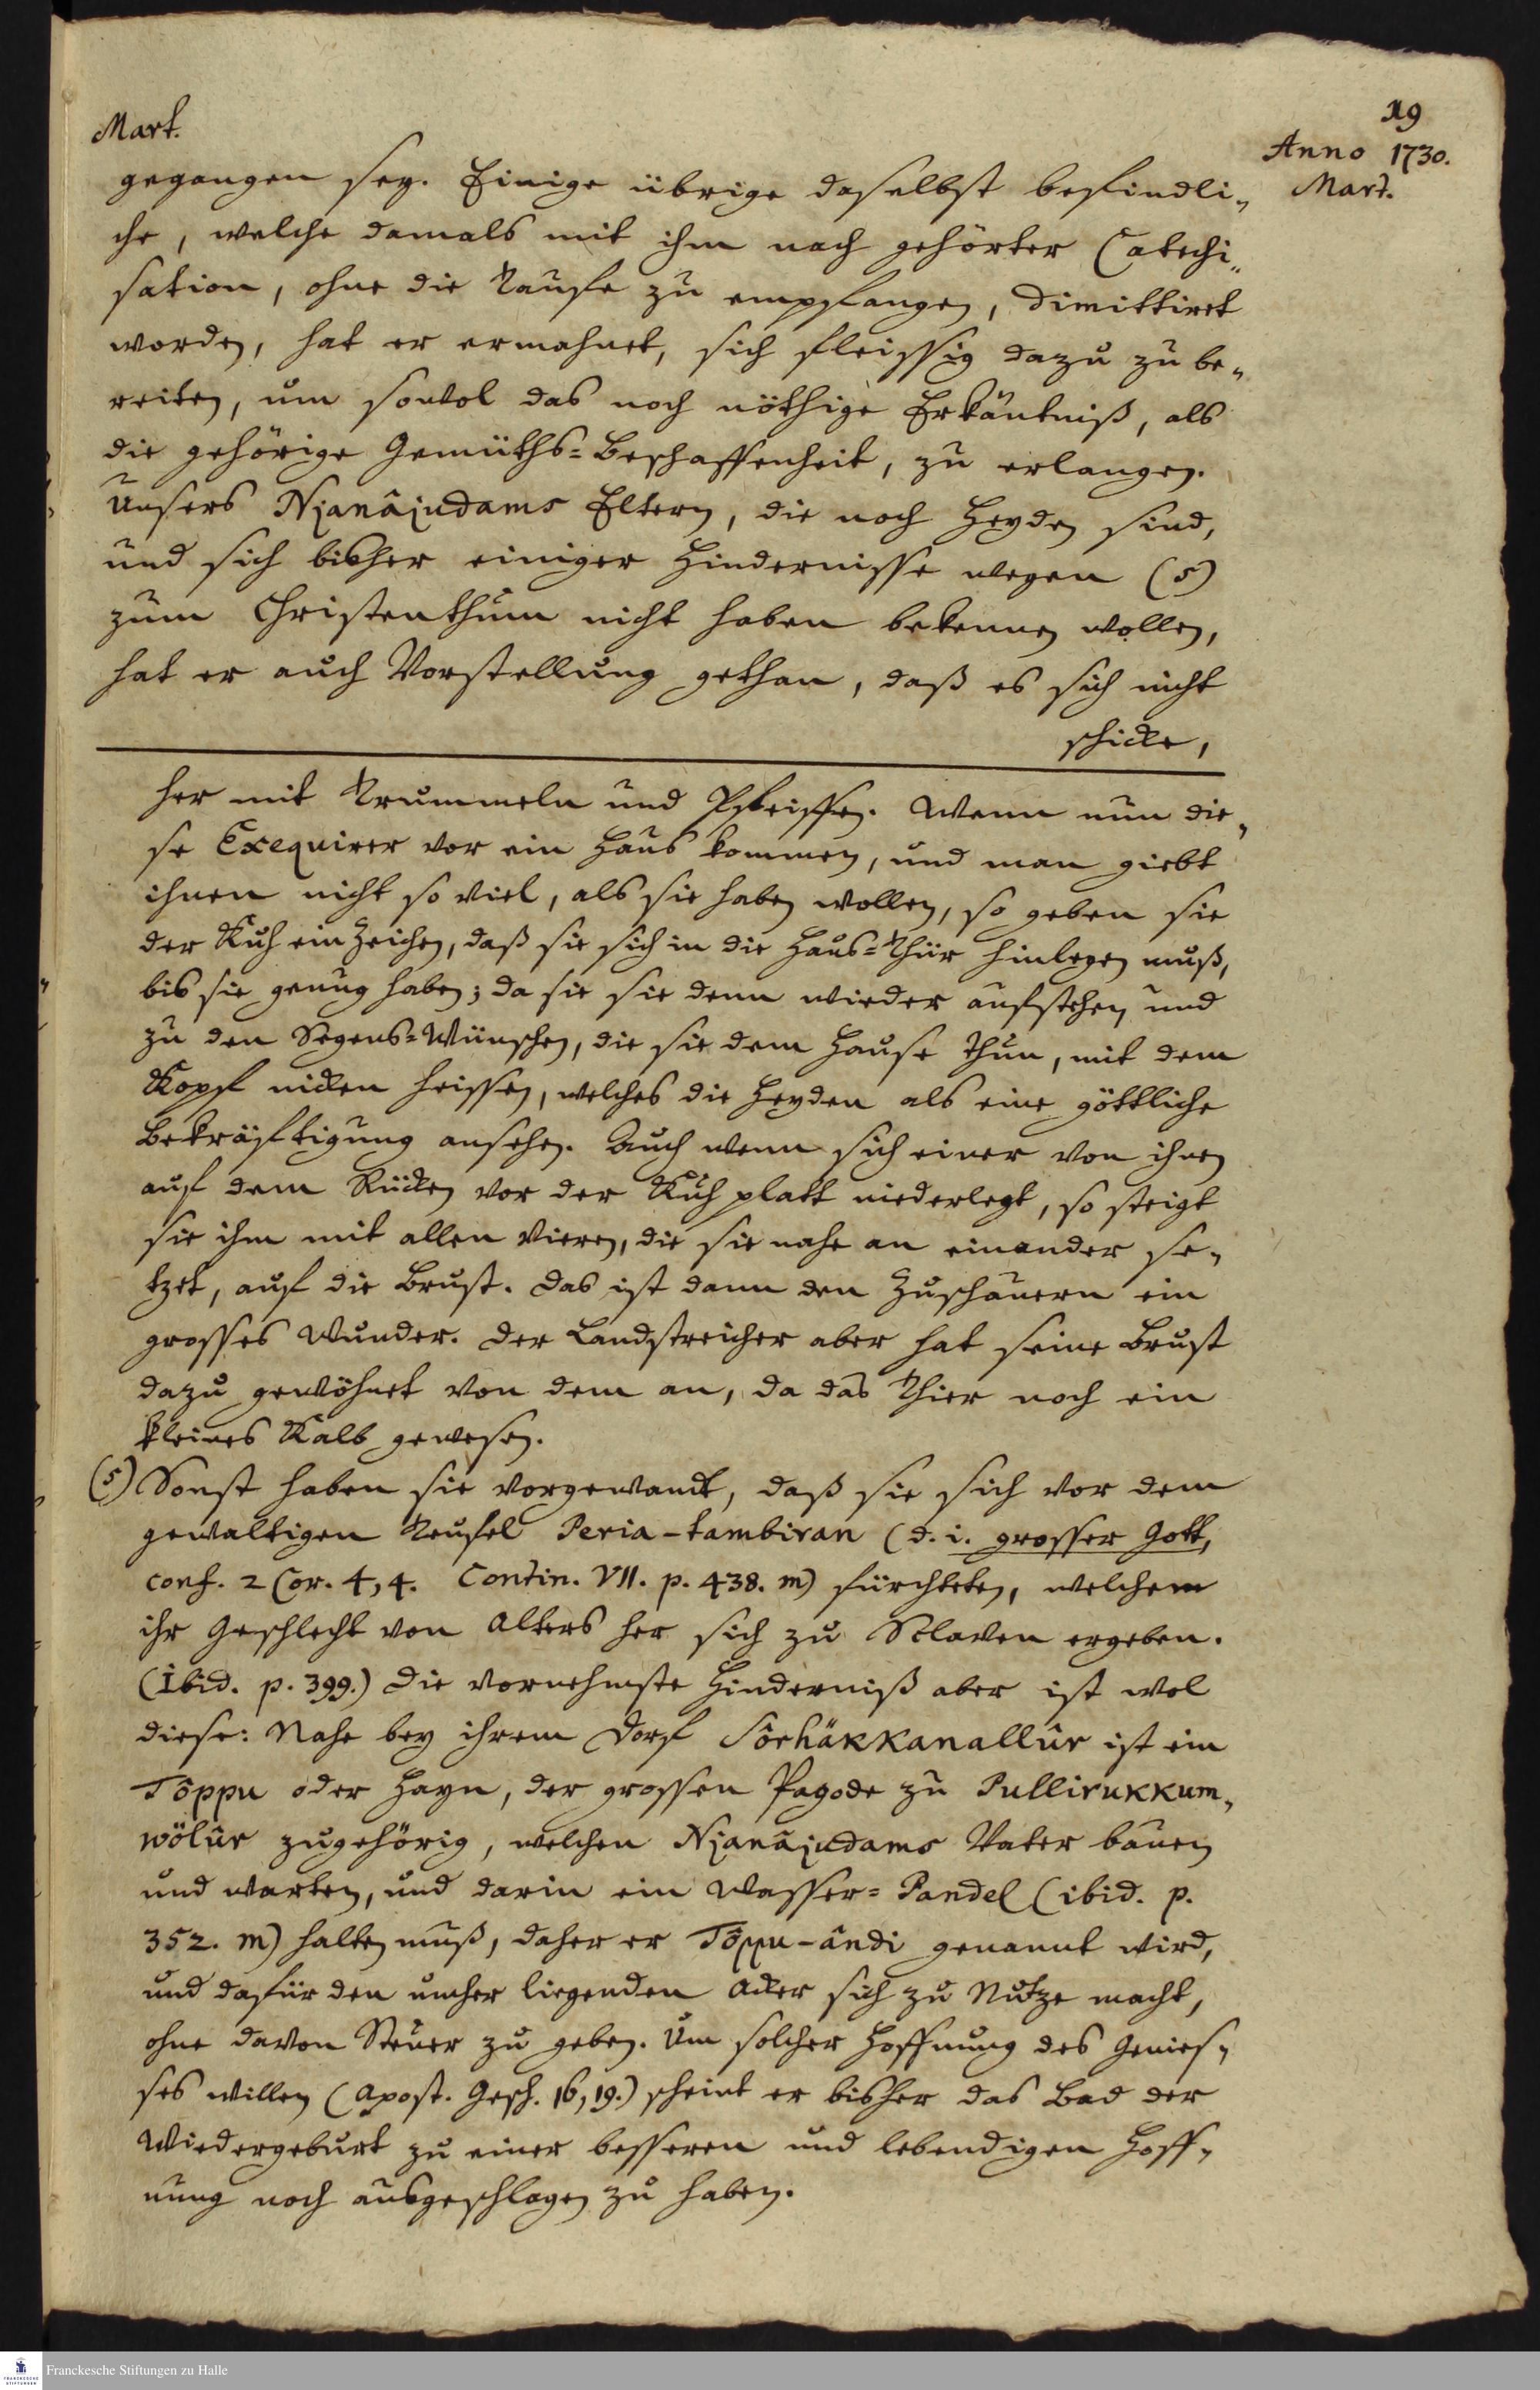 19
Mart.
Anno 1730.
Mart.
gegangen sey. Einige übrige daselbst befindli„
che, welche damals mit ihm nach gehörter Catechi„
sation, ohne die Taufe zu empfangen, dimittiret
worden, hat er ermahnet, sich fleissig dazu zu be„
reiten, um sowol das noch nöthige Erkäntniß, als
die gehörige Gemüths=Beschaffenheit, zu erlangen.
Unsers Njanâjudams Eltern, die noch Heyden sind,
und sich bisher einiger Hindernisse wegen (5)
zum Christenthum nicht haben bekennen wollen,
hat er auch Vorstellung gethan, daß es sich nicht
schicke,
her mit Trummeln und Pfeiffen. Wenn nun die„
se Exequirer vor ein Haus kommen, und man giebt
ihnen nicht so viel, als sie haben wollen, so geben sie
der Kuh ein Zeichen, daß sie sich in die Haus=Thür hinlegen muß,
bis sie genug haben; da sie sie denn wieder aufstehen und
zu den Segens=Wünschen, die sie dem Hause thun, mit dem
Kopf nicken heissen, welches die Heyden als eine göttliche
Bekräftigung ansehen. Auch wenn sich einer von ihnen
auf dem Rücken vor der Kuh platt niederlegt, so steigt
sie ihm mit allen Vieren, die sie nahe an einander se„
tzet, auf die Brust. Das ist dann den Zuschauern ein
grosses Wunder. Der Landstreicher aber hat seine Brust
dazu gewöhnet von dem an, da das Thier noch ein
kleines Kalb gewesen.
(5) Sonst haben sie vorgewandt, daß sie sich vor dem
gewaltigen Teufel Peria-tambiran (d. i. grosser Gott,
conf. 2 Cor. 4, 4. Contin. VII. p. 438. m) fürchteten, welchem
ihr Geschlecht von Alters her sich zu Sclaven ergeben.
(Ibid. p. 399.) Die vornehmste Hinderniß aber ist wol
diese: Nahe bey ihrem Dorf Sôrhäkkanallûr ist ein
Tôppu oder Hayn, der grossen Pagode zu Pullirukkum„
wölûr zugehörig, welchen Njanâjudams Vater bauen
und warten, und darin ein Wasser=Pandel (ibid. p.
352. m) halten muß, daher er Tôppu-ândi genannt wird,
und dafür den umher liegenden Acker sich zu Nutze macht,
ohne davon Steuer zu geben. Um solcher Hoffnung des Genies„
ses willen (Apost. Gesch. 16, 19.) scheint er bisher das Bad der
Wiedergeburt zu einer besseren und lebendigen Hoff„
nung noch ausgeschlagen zu haben.
FRANCKESCHE
STIFTUNGEN
Franckesche Stiftungen zu Halle